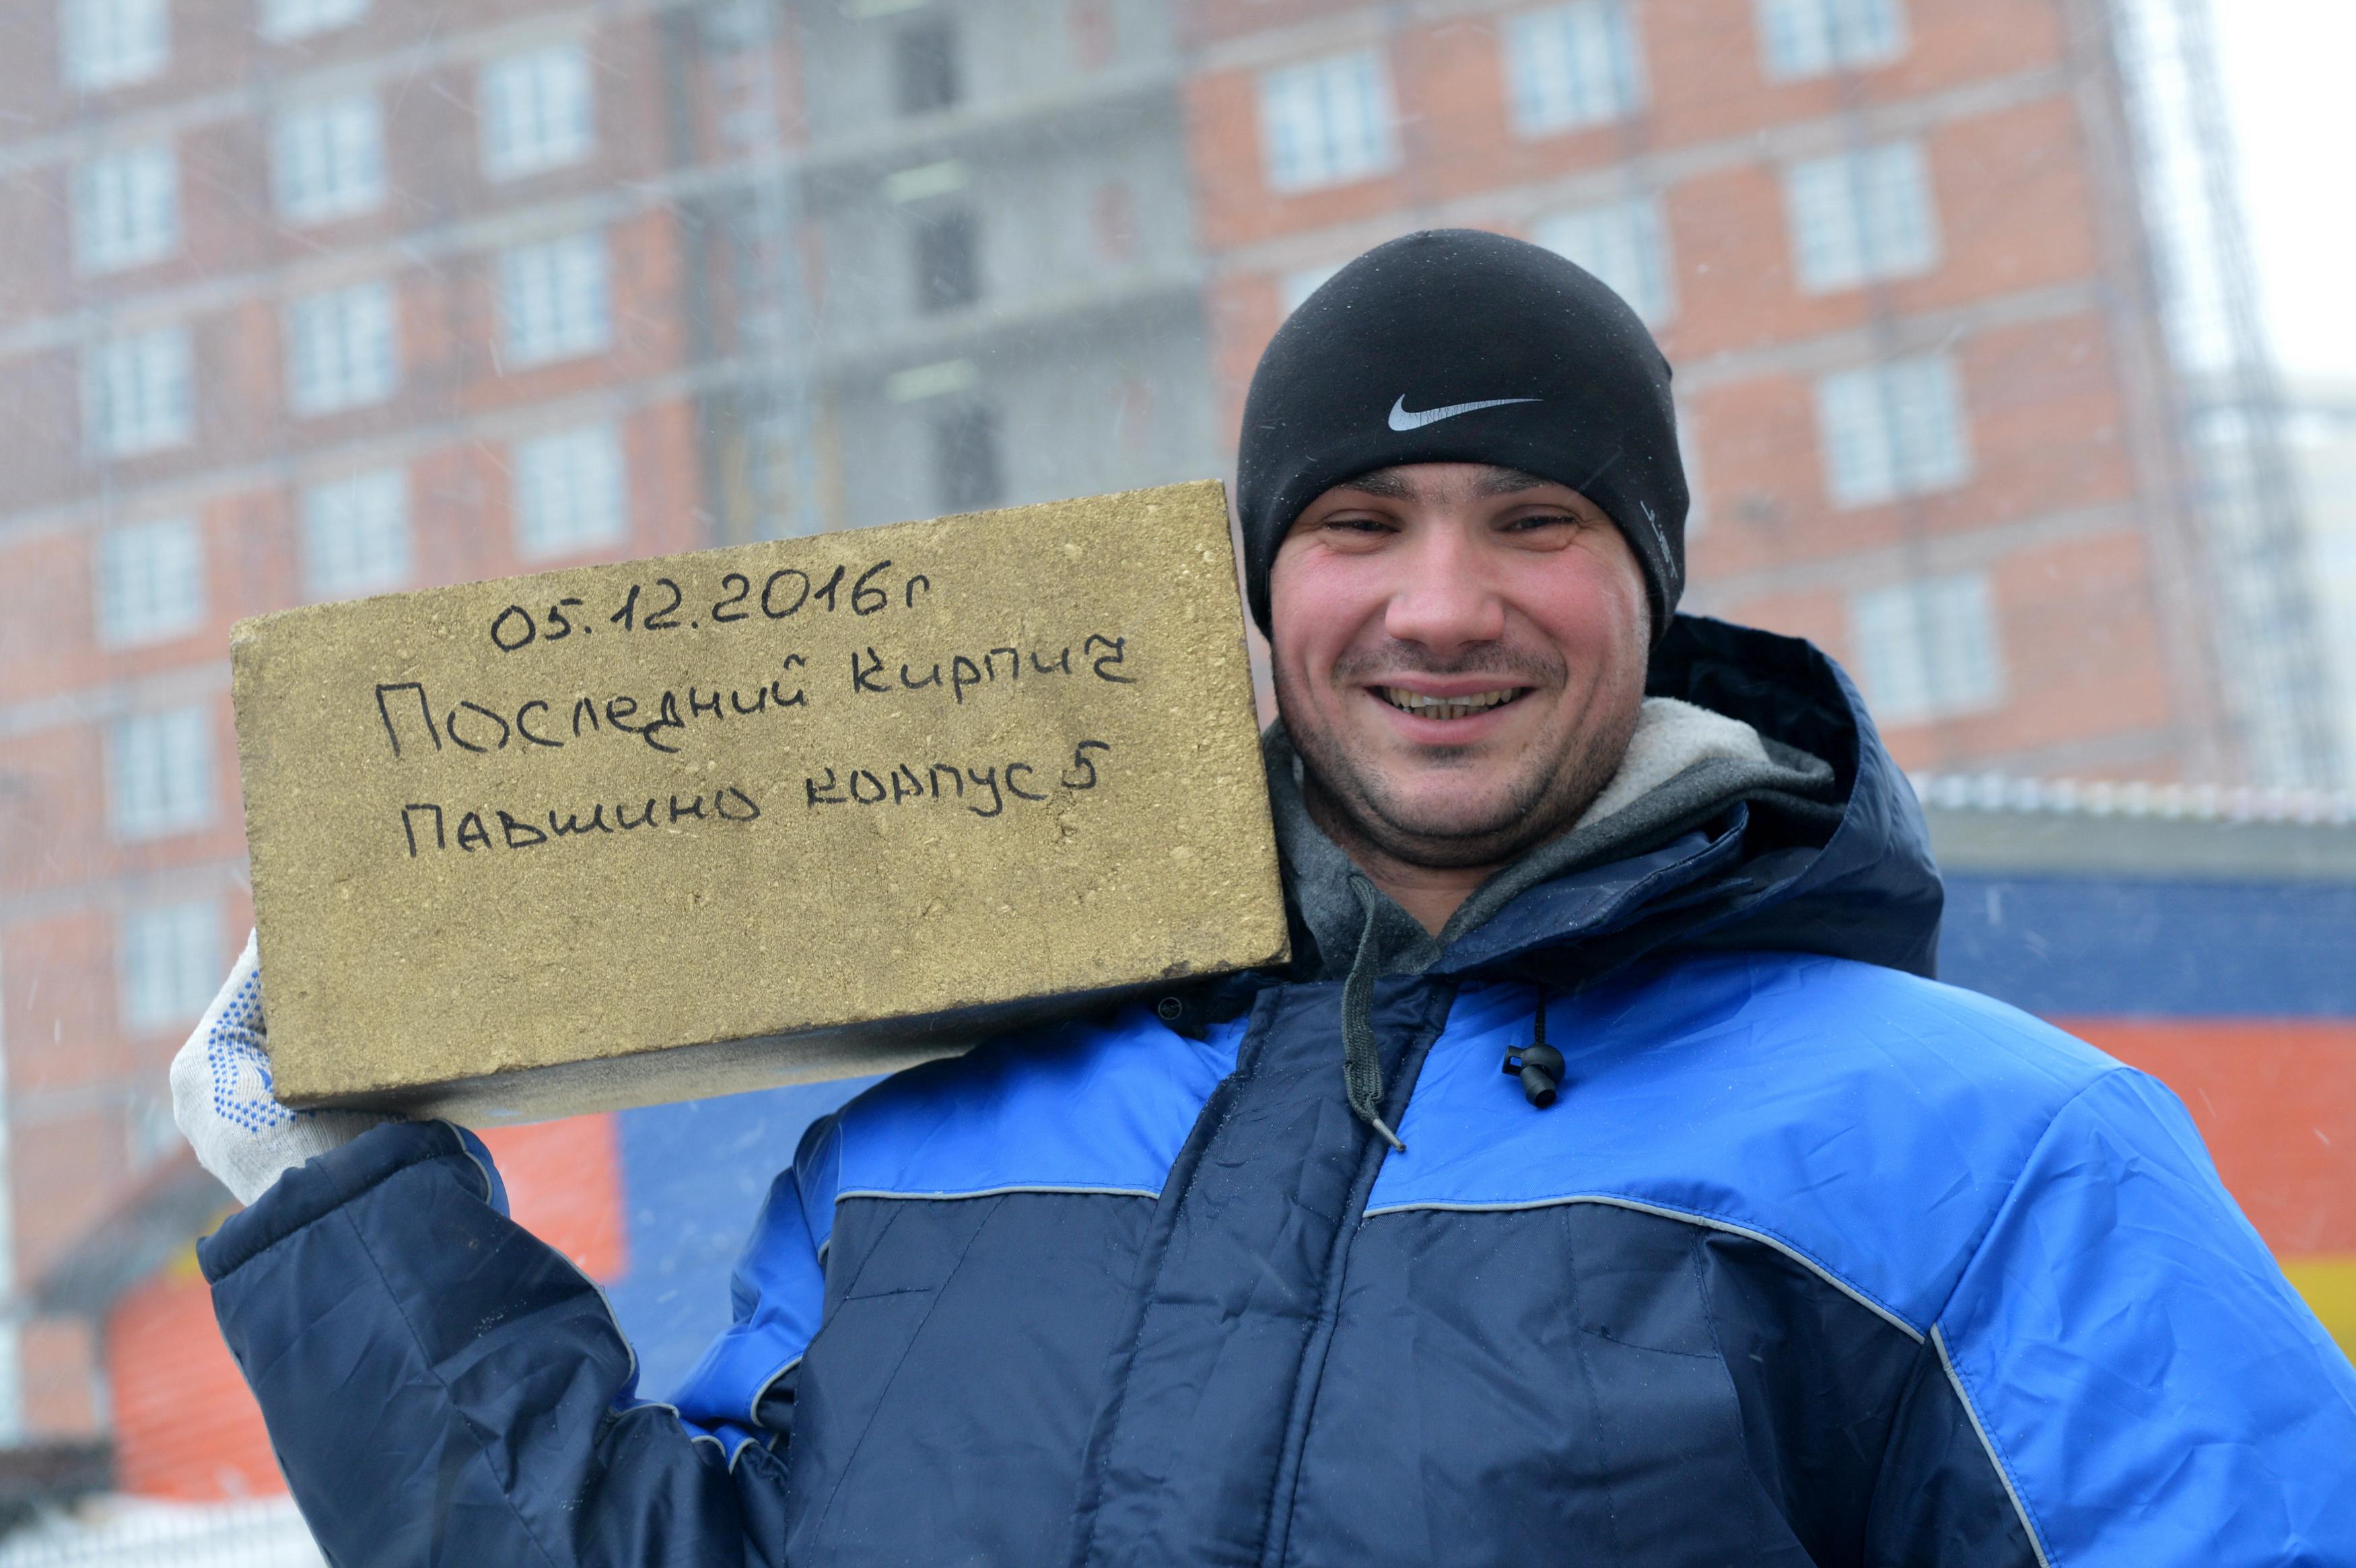 05.12.2016г
Последний кирпич
Павшино корпус 5